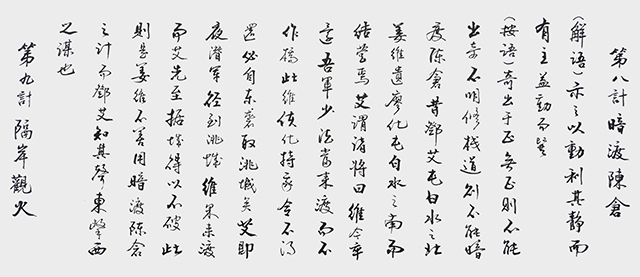 第八計暗渡陳倉
(解语)示之以動利其静而
有主益動而巽
(按语)奇出于正无正则不能
出奇不明修栈道则不能暗
度陈倉昔鄧艾屯白水之北
姜维遣廖化屯白水之南而
结营焉艾谓诸将曰维今卒
還吾軍少法當来渡而不
作橋此维使化持我令不得
還必自东襲取洮城矣艾即
夜潜军径到洮城维果来渡
而艾先至据城得以不破此
则是姜维不善用暗渡陈倉
之计而鄧艾知其聲東擊西
之谋也
第九計隔岸觀火